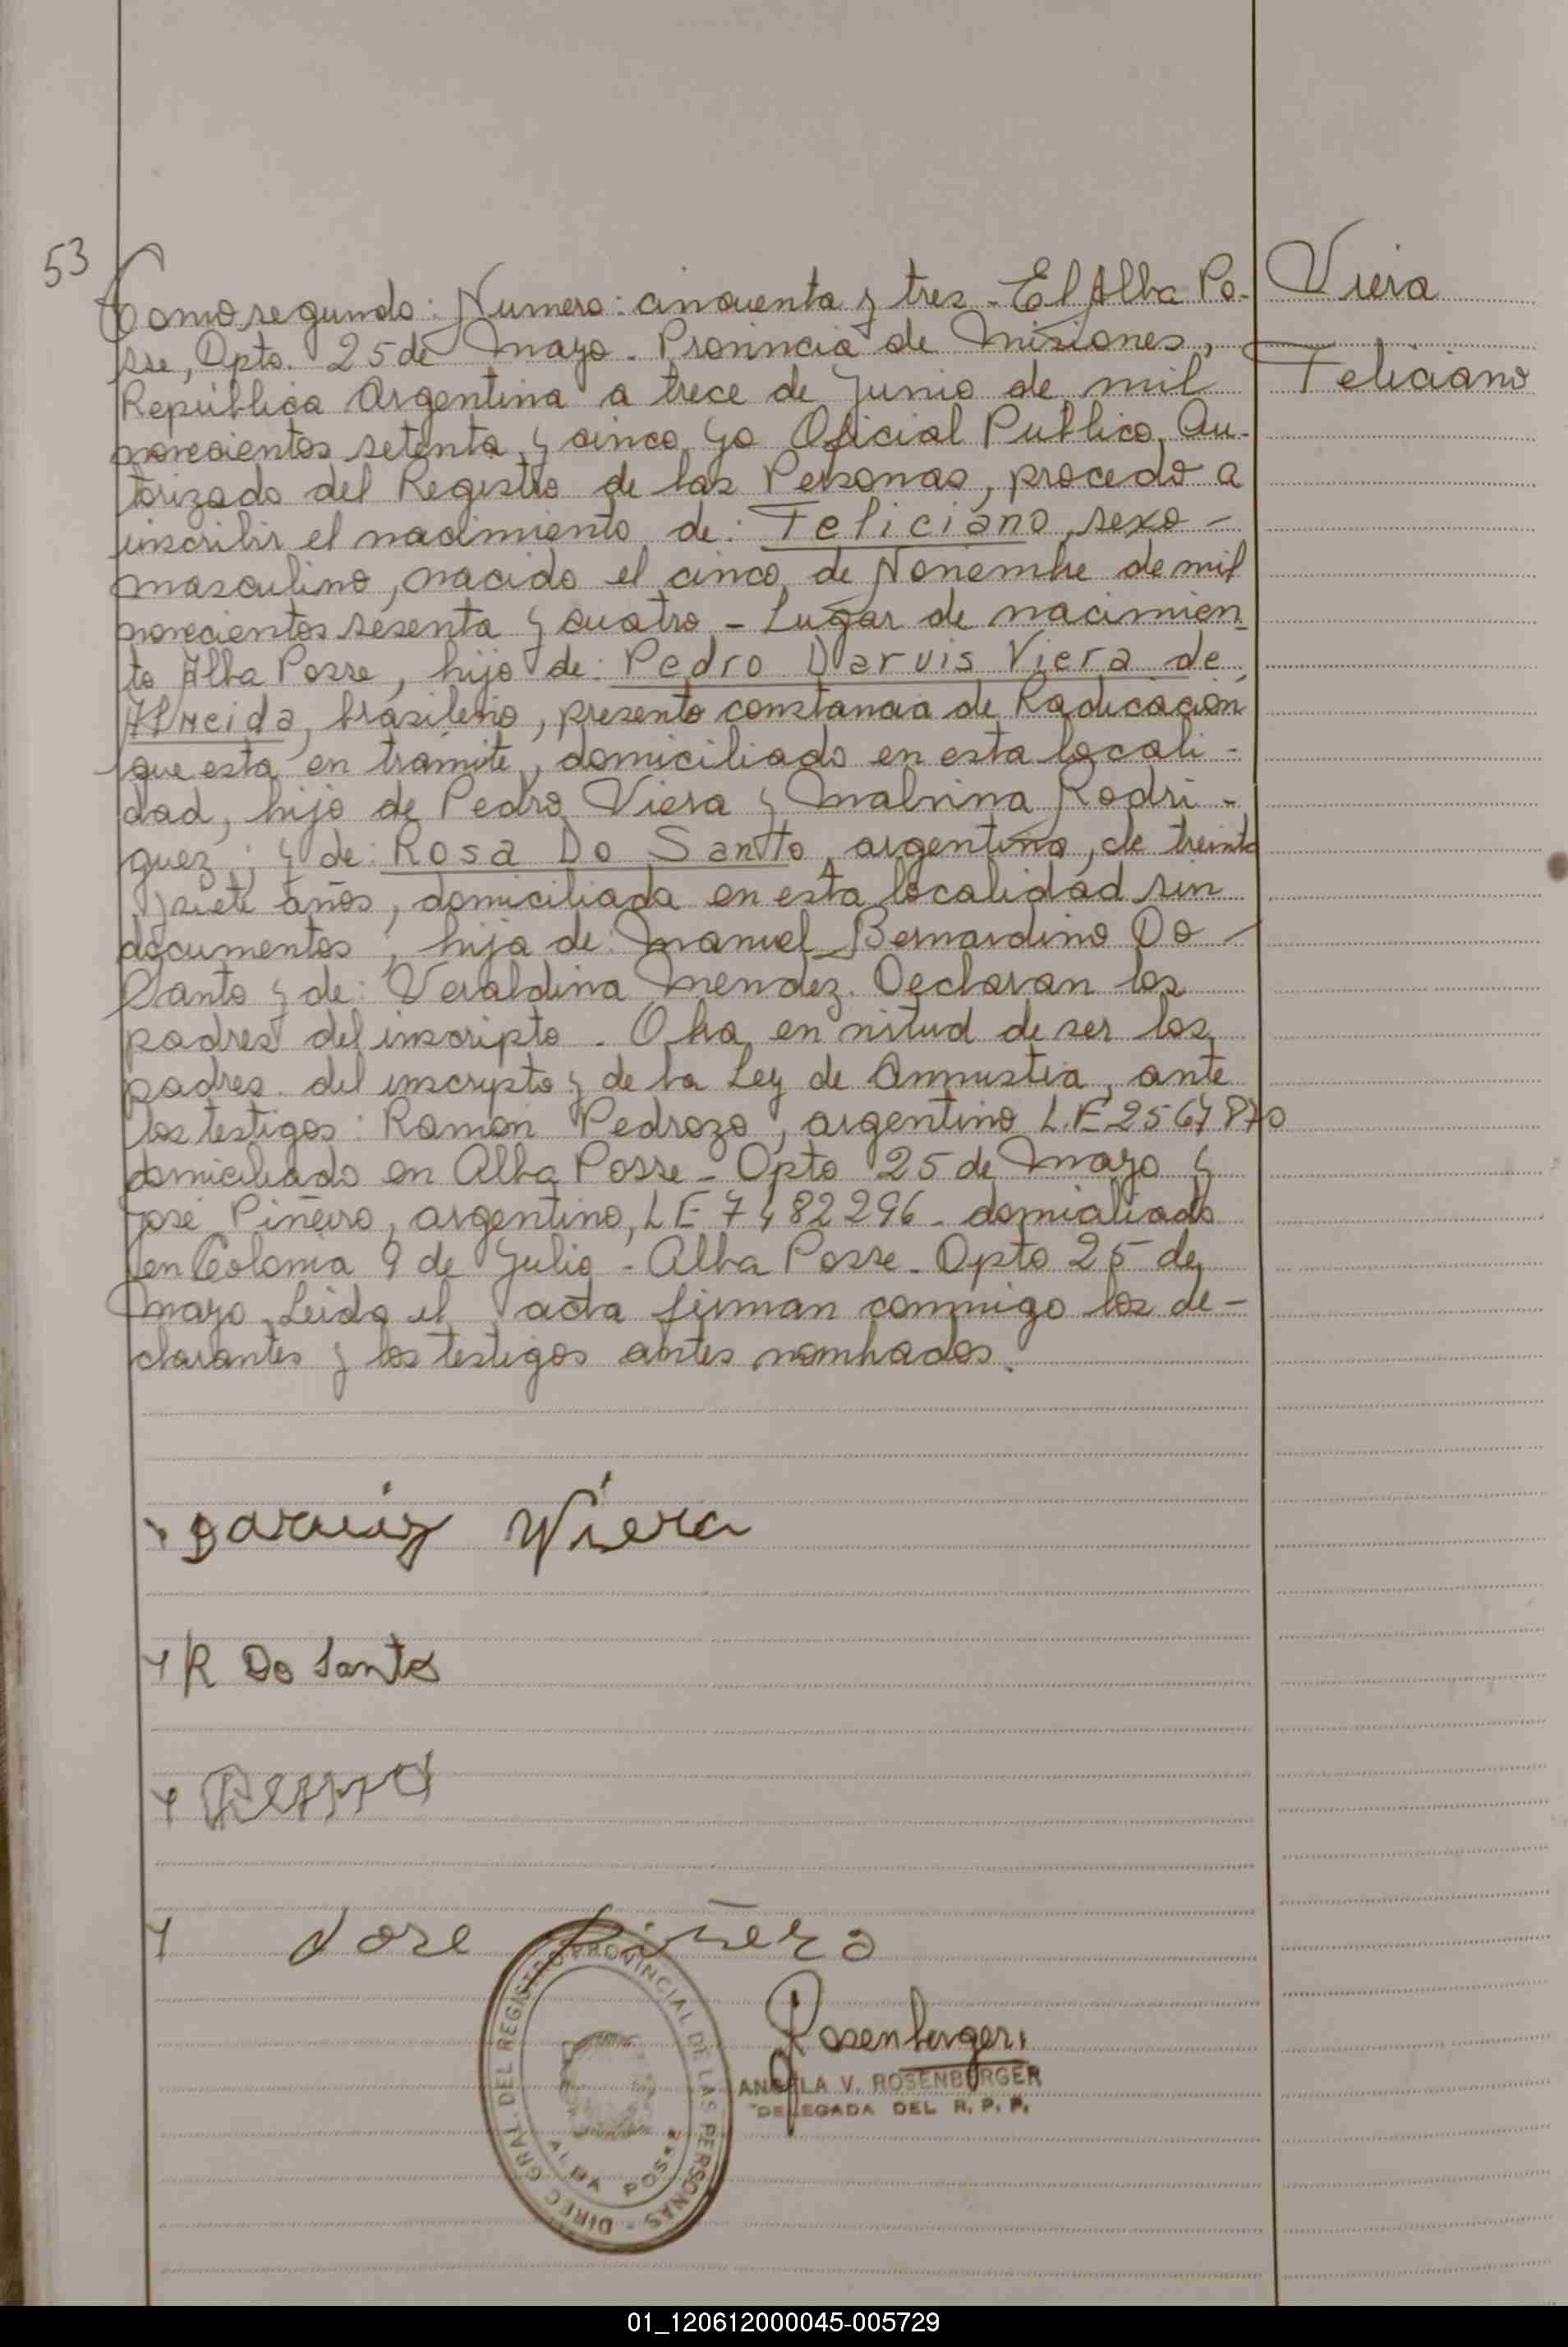 53
Tomo segundo: Numero: cincuenta y tres - El Alba Po-
sse, Dpto. 25 de Mayo - Provincia de Misiones,
República Argentina a trece de Junio de mil
novecientos setenta y cinco, yo Oficial Publico, Au-
torizado del Registro de las Personas, procedo a
inscribir el nacimiento de: Feliciano, sexo -
masculino, nacido el cinco de Noviembre de mil
novecientos sesenta y cuatro - Lugar de nacimien-
to Alba Posse, hijo de: Pedro Darvis Viera de
Almeida, brasileño, presento constancia de Radicación
que esta en tramite, domiciliado en esta locali -
dad, hijo de Pedro Viera y Malvina Rodri -
guez; y de: Rosa Do Santo, argentina, de treinta
y siete años, domiciliada en esta localidad sin
documentos; hija de: Manuel Bernardino Do -
Santo y de: Veraldina Mendez. Declaran los
padres del inscripto. Obra en virtud de ser los
padres del inscripto y de la Ley de Amnistia, ante
los testigos: Ramón Pedrozo, argentino L.E 2567870
domiciliado en Alba Posse - Dpto 25 de Mayo y
José Piñeiro, argentino, L E 7482296 - domiciliado
en Colonia 9 de Julio - Alba Posse - Dpto 25 de
Mayo, Leida el acta firman conmigo los de -
clarantes y los testigos antes nombrados.
Viera
Feliciano
Darviz Viera
R Do Santo
Jose Piñero
Rosenberger
ANGELA V. ROSENBURGER
DELEGADA DEL R. P. P.
DIREC. GRAL. DEL REGISTRO PROVINCIAL DE LAS PERSONAS -
ALBA POSSE
01_120612000045-005729